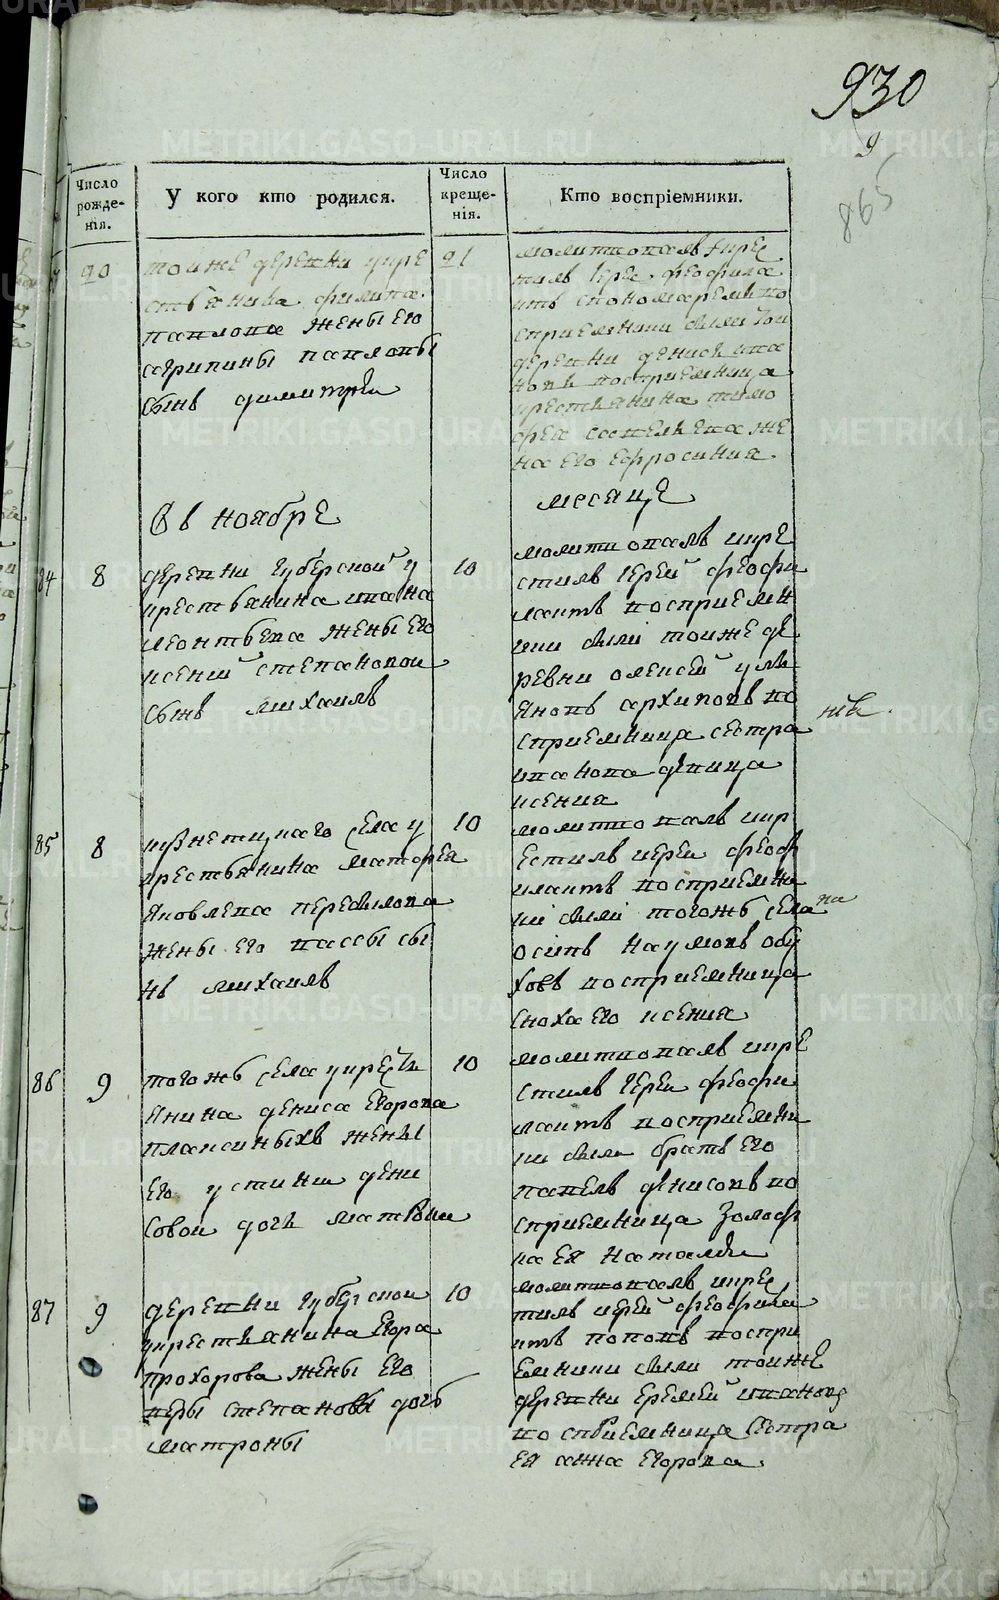 930
9
865
Число рожде-нія.
У кого кто родился.
Число креще-нія.
Кто воспріемники.
20
тоиже деревни кре
стьянина филипа
павлова жены его
агрипины павловы
сынъ димитреи
21
молитвовалъ и крес
тилъ Іереи феофила
ктъ с пономаремъ во
сприемники были тои
деревни денисъ ива
новъ восприемница
крестьянина тимо
фея савельева же
на его ефросиния
въ ноябре
месяце
84
8
деревни губерской у
крестьянина ивана
леонтьева жены его
ксении степановои
сынъ михаилъ
10
молитвовалъ и кре
стилъ Іерей феофи
лактъ восприемни
ки были тоиже де
ревни олексей уль
яновъ архиповъ во
сприемница сестра
иванова девица
ксения
85
8
кузнецкаго села у
крестьянина матфея
яковлева перевилова
жены его вассы сы
нъ михаилъ
10
молитвовалъ и кр
естилъ иереи феоф
илактъ восприемни
ки были тогожъ села
осипъ наумовъ обу
ховъ восприемница
сноха его ксения
86
9
тогожъ села у кресть
янина дениса егорова
плаксиныхъ жены
его устиньи дени
совои дочь матрона
10
молитвовалъ и кре
стилъ Іереи феофи
лактъ восприемни
ки были братъ его
павелъ денисовъ во
сприемница золов
ка ея наталья
87
9
деревни губерскои
крестьянина егора
прохорова жены его
веры степановы дочь
матроны
10
молитвовалъ и крес
тилъ иерей феофила
ктъ поповъ воспри
емники были тоиже
деревни еремей иванов
восприемница сестра
ея анна егорова
METRIKI.GASO-URAL.RU